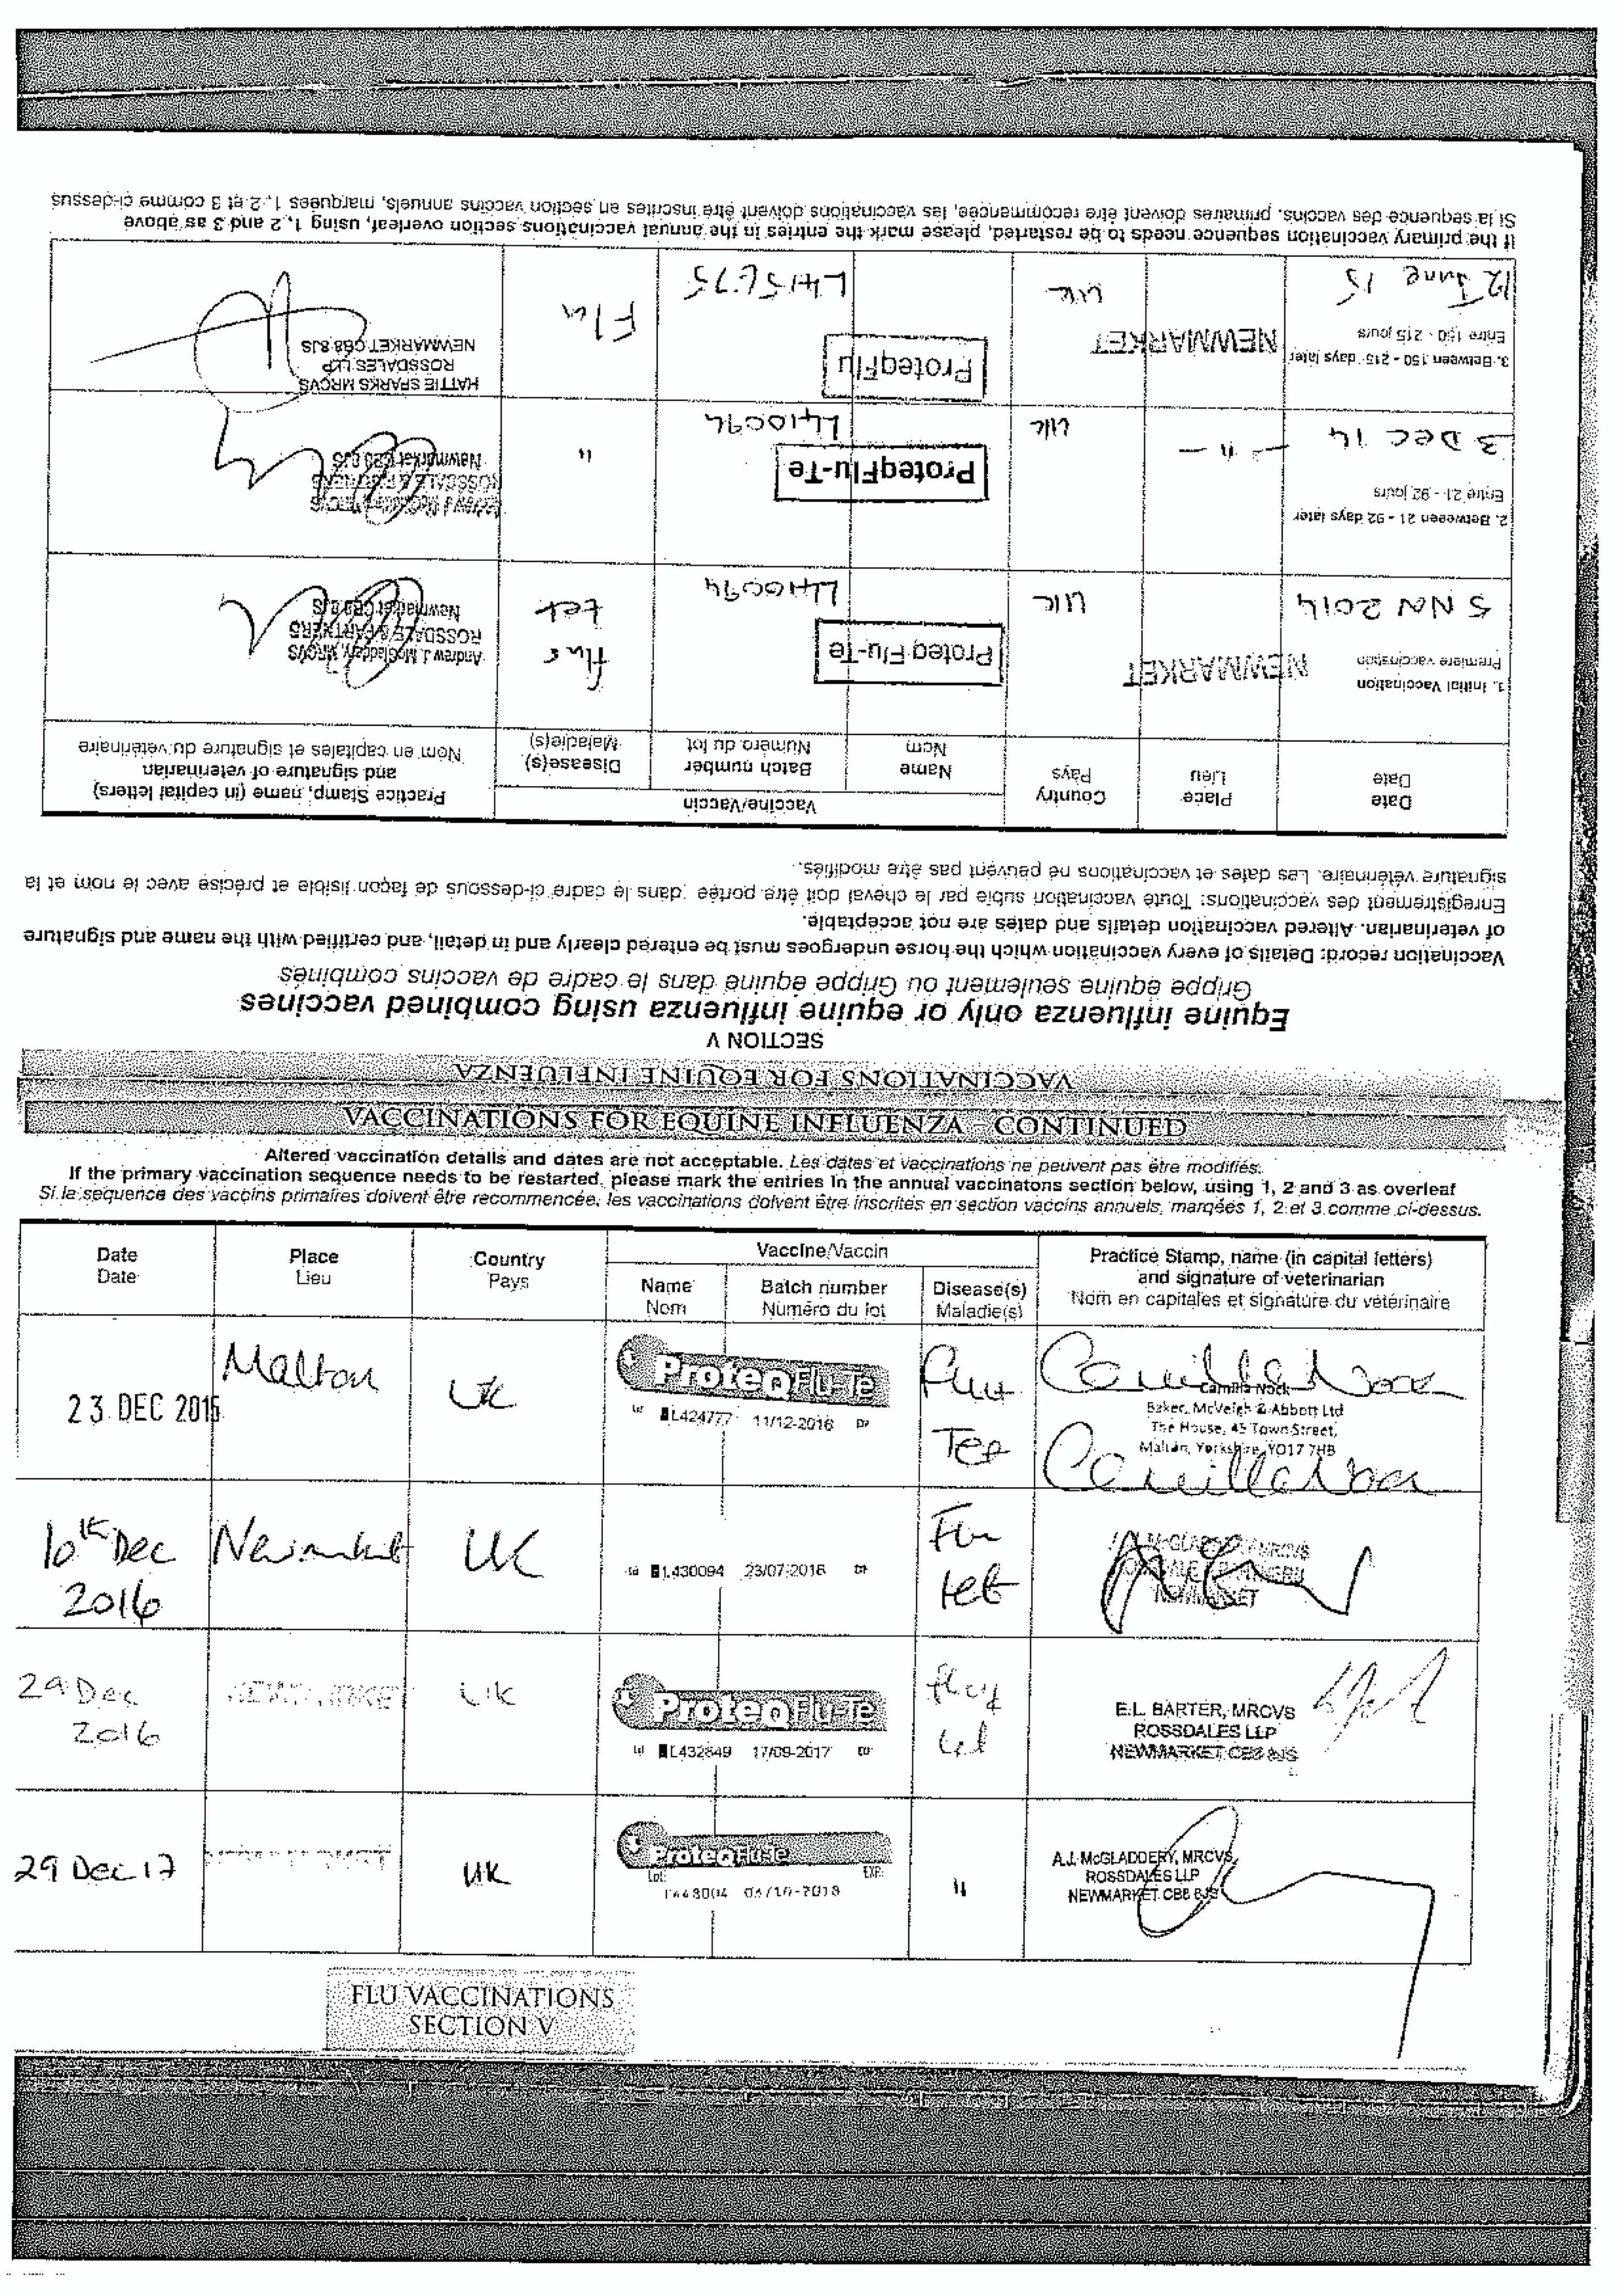 VACCINATIONS FOR EQUINE INFLUENZA
SECTION V
Equine influenza only or equine influenza using combined vaccines
Grippe équine seulement ou Grippe équine dans le cadre de vaccins combinés
Vaccination record: Details of every vaccination which the horse undergoes must be entered clearly and in detail, and certified with the name and signature
of veterinarian. Altered vaccination details and dates are not acceptable.
Enregistrement des vaccinations: Toute vaccination subie par le cheval doit être portée dans le cadre ci-dessous de façon lisible et précise avec le nom et la
signature vétérinaire. Les dates et vaccinations ne peuvent pas être modifiés.
Date
Date
Place
Lieu
Country
Pays
Vaccine/Vaccin
Name
Nom
Batch number
Numéro du lot
Disease(s)
Maladie(s)
Practice Stamp, name (in capital letters)
and signature of veterinarian
Nom en capitales et signature du vétérinaire
1. Initial Vaccination
Premiere vaccination
5 NOV 2014
NEWMARKET
UK
Proteq Flu-Te
L410094
flu &
tet
Andrew J. McGladdery, MRCVS
ROSSDALE & PARTNERS
Newmarket CB8 8JS
2. Betweeen 21 - 92 days later
Entre 21 - 92 jours
3 DEC 14
— " —
UK
ProteqFlu-Te
L410094
"
ROSSDALE & PARTNERS
Newmarket CB8 8JS
3. Between 150 - 215 days later
Entre 150 - 215 jours
12 June 15
NEWMARKET
UK
ProteqFlu
L415675
Flu
HATTIE SPARKS MRCVS
ROSSDALES LLP
NEWMARKET CB8 8JS
If the primary vaccination sequence needs to be restarted, please mark the entries in the annual vaccinations section overleaf, using 1, 2 and 3 as above
Si la sequence des vaccins primaires doivent être recommencée, les vaccinations doivent être inscrites en section vaccins annuels, marquees 1, 2 et 3 comme ci-dessus
VACCINATIONS FOR EQUINE INFLUENZA - CONTINUED
Altered vaccination details and dates are not acceptable. Les dates et vaccinations ne peuvent pas être modifiés.
If the primary vaccination sequence needs to be restarted, please mark the entries in the annual vaccinatons section below, using 1, 2 and 3 as overleaf
Si la sequence des vaccins primaires doivent être recommencée, les vaccinations doivent être inscrites en section vaccins annuels, marqées 1, 2 et 3 comme ci-dessus.
Date
Date
Place
Lieu
Country
Pays
Vaccine/Vaccin
Name
Nom
Batch number
Numéro du lot
Disease(s)
Maladie(s)
Practice Stamp, name (in capital letters)
and signature of veterinarian
Nom en capitales et signature du vétérinaire
23 DEC 2015
Malton
UK
ProteqFlu-Te
L424777 11/12-2016
Flu
Tet
Camilla Nock
Camilla Nock
Baker, McVeigh & Abbott Ltd
The House, 45 Town Street,
Malton, Yorkshire, YO17 7HB
Camilla Nock
10th Dec
2016
Newmarket
UK
L430094 23/07-2018
Flu
tet
NEWMARKET
29 Dec
2016
NEWMARKET
UK
ProteqFlu-Te
L432849 17/09-2017
flu
tet
E.L. BARTER, MRCVS
ROSSDALES LLP
NEWMARKET CB8 8JS
29 Dec 17
NEWMARKET
UK
ProteqFlu-Te
Lot: EXP:
03/10-2018
"
A.J. McGLADDERY, MRCVS,
ROSSDALES LLP
NEWMARKET CB8 8JS
FLU VACCINATIONS
SECTION V